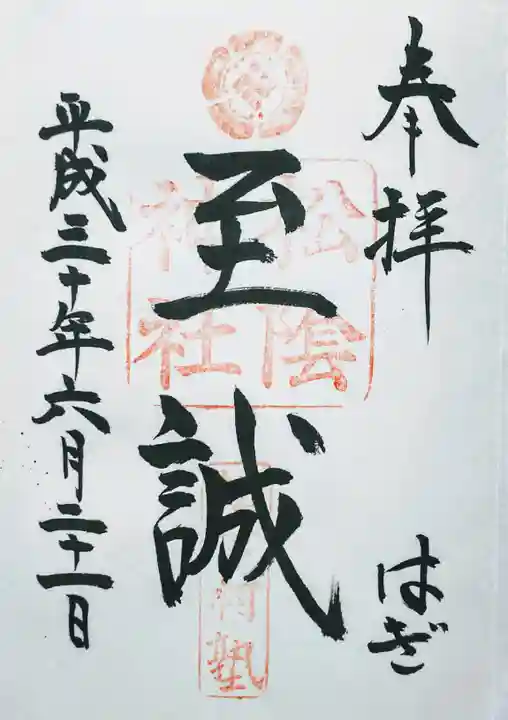 奉拝
はぎ
至誠
松陰
神社
塾
平成三十年六月二十一日